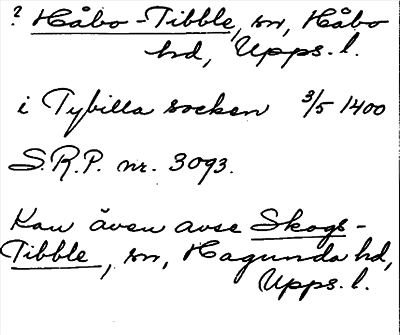 ? Håbo-Tibble, sn, Håbo
hd, Upps. l.
i Tybilla socken 3/5 1400
S.R.P. nr. 3093.
Kan även avse Skogs-
Tibble, sn, Hagunda hd,
Upps. l.